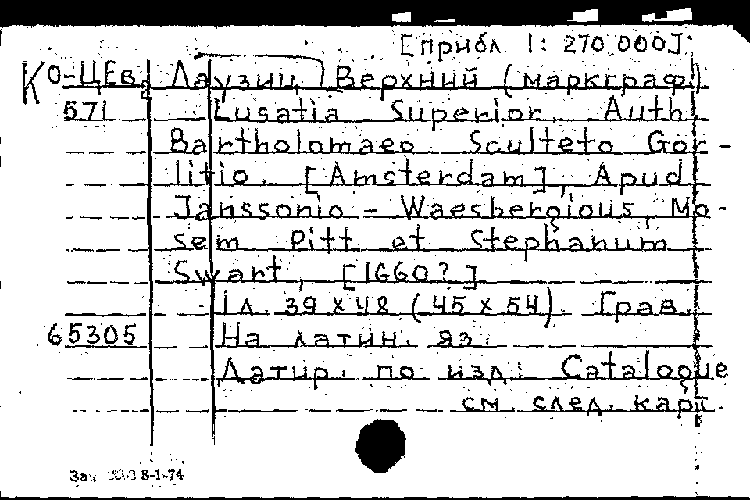 [прибл 1: 270 000].
Ко-Цев. Лаузиц Верхний (маркграф.)
571 Lusatia Superior. Auth.
Bartholomaeo Sculteto Gor-
litio. [Amsterdam], Apud
Janssonio - Waesbergious, Mo-
sem Pitt et Stephanum
Swart, [1660?]
1 л. 39 x 48 (45 x 54). Грав.
65305 На латин. яз.
Датир. по изд.: Catalogue
см. след. карт.
Зак 8-1-74